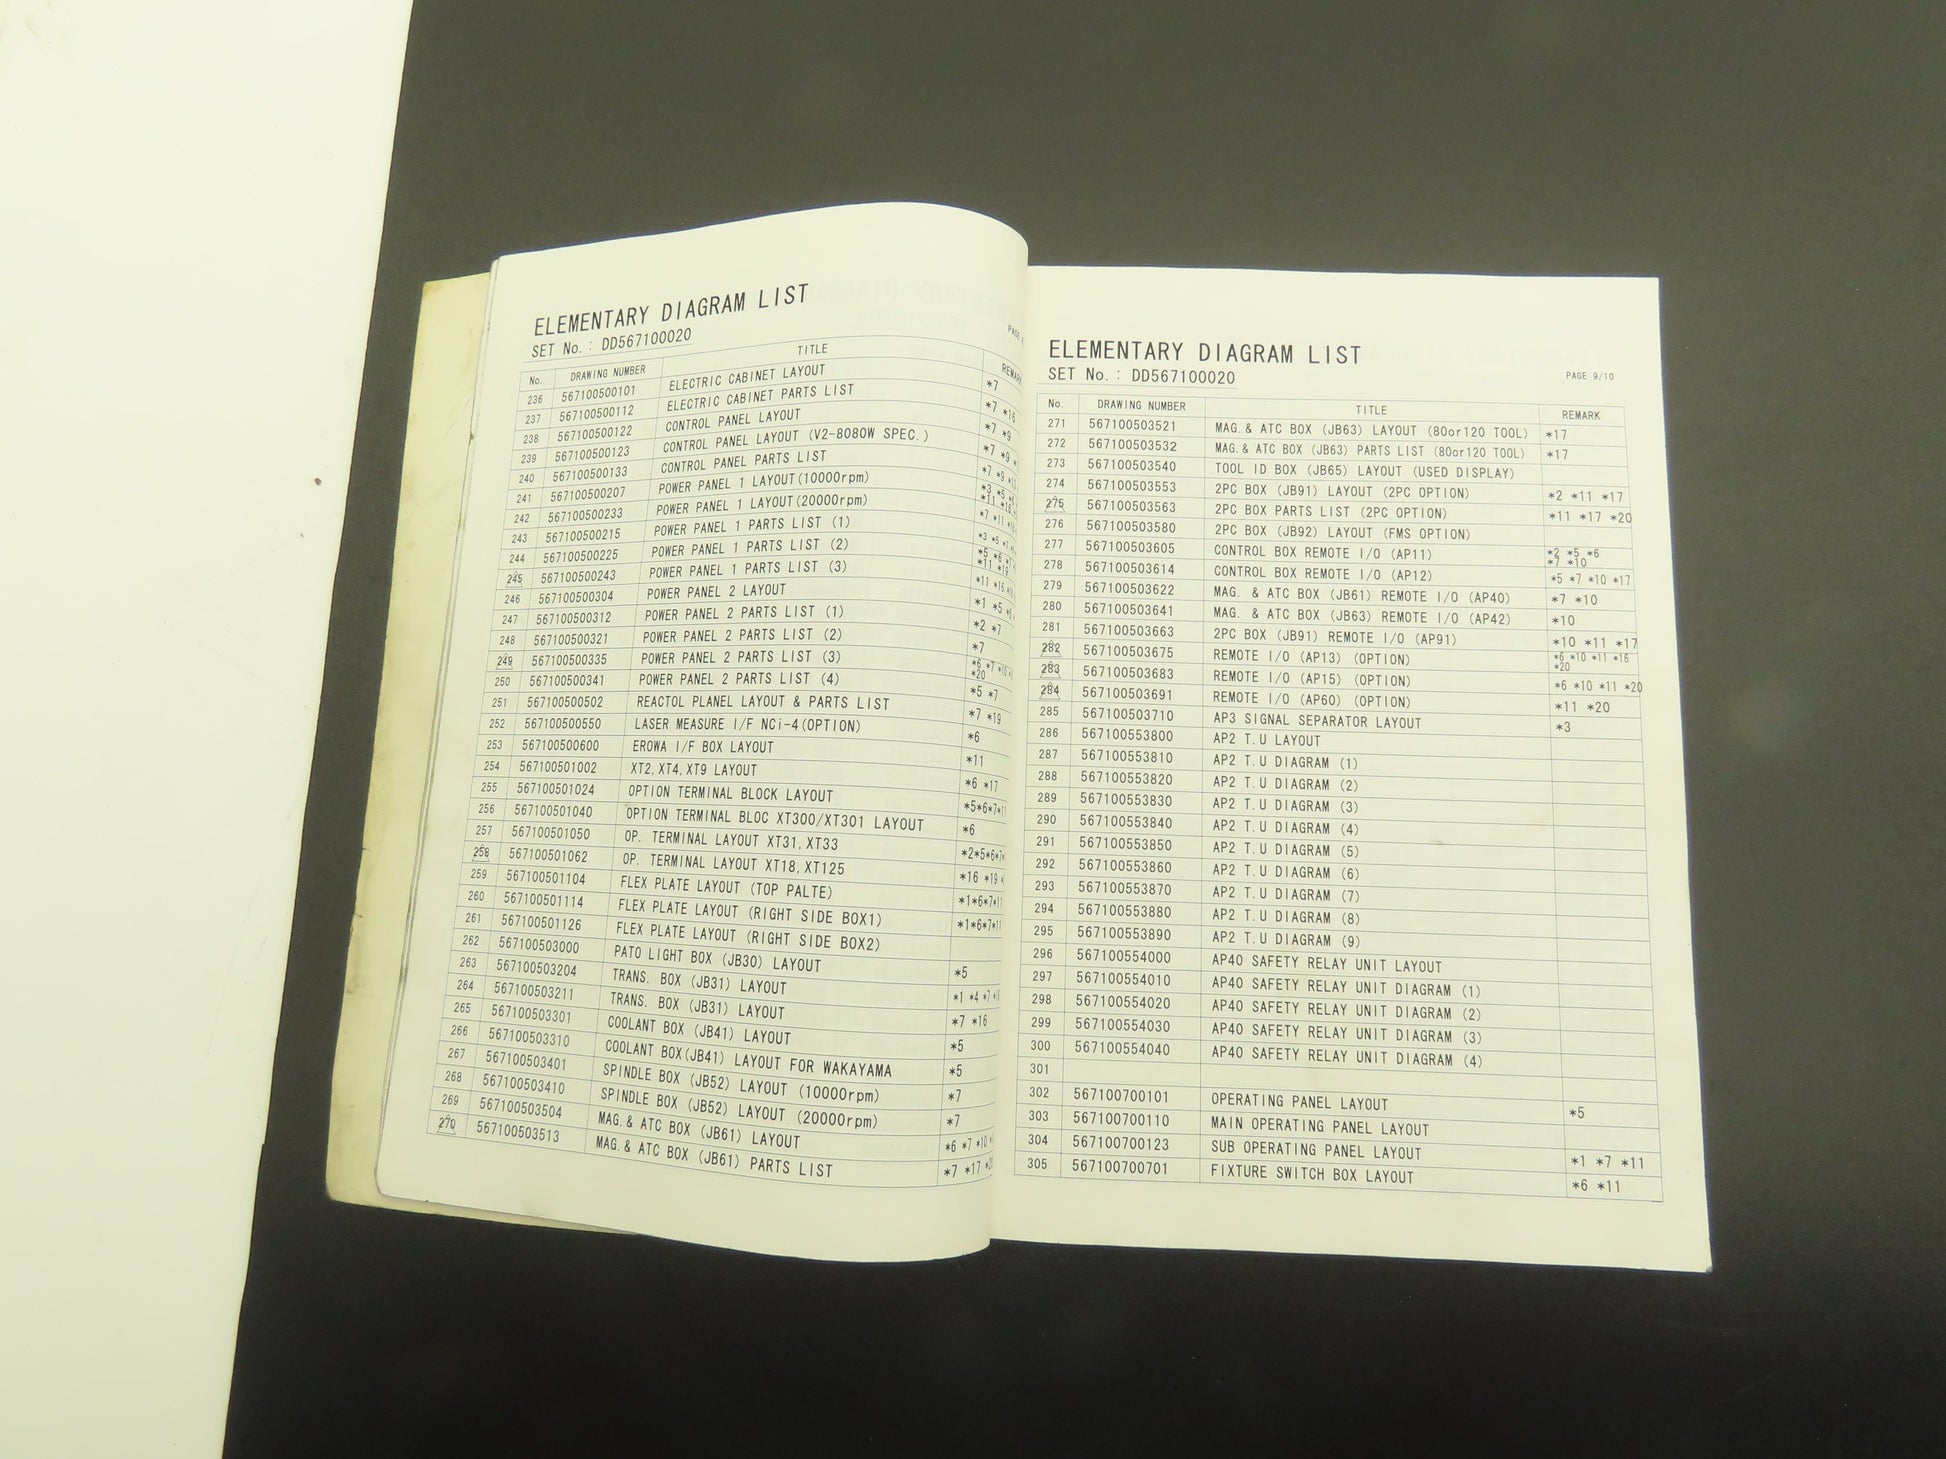 ELEMENTARY DIAGRAM LIST
SET No. : DD567100020
PAGE
No. DRAWING NUMBER TITLE REMARK
236 567100500101 ELECTRIC CABINET LAYOUT *7
237 567100500112 ELECTRIC CABINET PARTS LIST *7 *16
238 567100500122 CONTROL PANEL LAYOUT *7 *9
239 567100500123 CONTROL PANEL LAYOUT (V2-8080W SPEC.) *7 *9
240 567100500133 CONTROL PANEL PARTS LIST *7 *9
241 567100500207 POWER PANEL 1 LAYOUT(10000rpm) *3 *5 *6 *11 *16
242 567100500233 POWER PANEL 1 LAYOUT(20000rpm) *7 *11
243 567100500215 POWER PANEL 1 PARTS LIST (1) *3 *5 *7
244 567100500225 POWER PANEL 1 PARTS LIST (2) *5 *6 *7 *11 *19
245 567100500243 POWER PANEL 1 PARTS LIST (3) *11 *16
246 567100500304 POWER PANEL 2 LAYOUT *1 *5 *6
247 567100500312 POWER PANEL 2 PARTS LIST (1) *2 *7
248 567100500321 POWER PANEL 2 PARTS LIST (2) *7
249 567100500335 POWER PANEL 2 PARTS LIST (3) *6 *7 *10 *20
250 567100500341 POWER PANEL 2 PARTS LIST (4) *5 *7
251 567100500502 REACTOL PLANEL LAYOUT & PARTS LIST *7 *19
252 567100500550 LASER MEASURE I/F NCi-4(OPTION) *6
253 567100500600 EROWA I/F BOX LAYOUT *11
254 567100501002 XT2, XT4, XT9 LAYOUT *6 *17
255 567100501024 OPTION TERMINAL BLOCK LAYOUT *5*6*7*11
256 567100501040 OPTION TERMINAL BLOC XT300/XT301 LAYOUT *6
257 567100501050 OP. TERMINAL LAYOUT XT31, XT33 *2*5*6*7
258 567100501062 OP. TERMINAL LAYOUT XT18, XT125 *16 *19
259 567100501104 FLEX PLATE LAYOUT (TOP PALTE) *1*6*7*11
260 567100501114 FLEX PLATE LAYOUT (RIGHT SIDE BOX1) *1*6*7*11
261 567100501126 FLEX PLATE LAYOUT (RIGHT SIDE BOX2)
262 567100503000 PATO LIGHT BOX (JB30) LAYOUT *5
263 567100503204 TRANS. BOX (JB31) LAYOUT *1 *4 *7 *16
264 567100503211 TRANS. BOX (JB31) LAYOUT *7 *16
265 567100503301 COOLANT BOX (JB41) LAYOUT *5
266 567100503310 COOLANT BOX(JB41) LAYOUT FOR WAKAYAMA *5
267 567100503401 SPINDLE BOX (JB52) LAYOUT (10000rpm) *7
268 567100503410 SPINDLE BOX (JB52) LAYOUT (20000rpm) *7
269 567100503504 MAG.& ATC BOX (JB61) LAYOUT *6 *7 *10
270 567100503513 MAG.& ATC BOX (JB61) PARTS LIST *7 *17 *20
ELEMENTARY DIAGRAM LIST
SET No. : DD567100020
PAGE 9/10
No. DRAWING NUMBER TITLE REMARK
271 567100503521 MAG.& ATC BOX (JB63) LAYOUT (80or120 TOOL) *17
272 567100503532 MAG.& ATC BOX (JB63) PARTS LIST (80or120 TOOL) *17
273 567100503540 TOOL ID BOX (JB65) LAYOUT (USED DISPLAY)
274 567100503553 2PC BOX (JB91) LAYOUT (2PC OPTION) *2 *11 *17
275 567100503563 2PC BOX PARTS LIST (2PC OPTION) *11 *17 *20
276 567100503580 2PC BOX (JB92) LAYOUT (FMS OPTION)
277 567100503605 CONTROL BOX REMOTE I/O (AP11) *2 *5 *6 *7 *10
278 567100503614 CONTROL BOX REMOTE I/O (AP12) *5 *7 *10 *17
279 567100503622 MAG. & ATC BOX (JB61) REMOTE I/O (AP40) *7 *10
280 567100503641 MAG. & ATC BOX (JB63) REMOTE I/O (AP42) *10
281 567100503663 2PC BOX (JB91) REMOTE I/O (AP91) *10 *11 *17
282 567100503675 REMOTE I/O (AP13) (OPTION) *6 *10 *11 *16 *20
283 567100503683 REMOTE I/O (AP15) (OPTION) *6 *10 *11 *20
284 567100503691 REMOTE I/O (AP60) (OPTION) *11 *20
285 567100503710 AP3 SIGNAL SEPARATOR LAYOUT *3
286 567100553800 AP2 T.U LAYOUT
287 567100553810 AP2 T.U DIAGRAM (1)
288 567100553820 AP2 T.U DIAGRAM (2)
289 567100553830 AP2 T.U DIAGRAM (3)
290 567100553840 AP2 T.U DIAGRAM (4)
291 567100553850 AP2 T.U DIAGRAM (5)
292 567100553860 AP2 T.U DIAGRAM (6)
293 567100553870 AP2 T.U DIAGRAM (7)
294 567100553880 AP2 T.U DIAGRAM (8)
295 567100553890 AP2 T.U DIAGRAM (9)
296 567100554000 AP40 SAFETY RELAY UNIT LAYOUT
297 567100554010 AP40 SAFETY RELAY UNIT DIAGRAM (1)
298 567100554020 AP40 SAFETY RELAY UNIT DIAGRAM (2)
299 567100554030 AP40 SAFETY RELAY UNIT DIAGRAM (3)
300 567100554040 AP40 SAFETY RELAY UNIT DIAGRAM (4)
301
302 567100700101 OPERATING PANEL LAYOUT *5
303 567100700110 MAIN OPERATING PANEL LAYOUT
304 567100700123 SUB OPERATING PANEL LAYOUT *1 *7 *11
305 567100700701 FIXTURE SWITCH BOX LAYOUT *6 *11